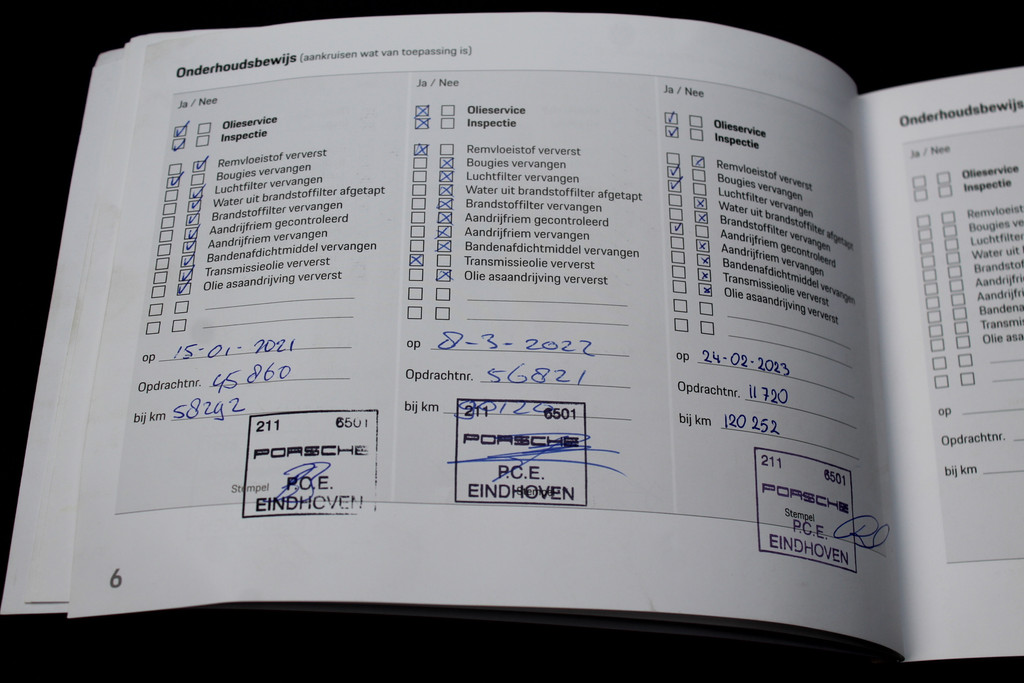 Onderhoudsbewijs (aankruisen wat van toepassing is)
Ja / Nee
Olieservice
Inspectie
Remvloeistof ververst
Bougies vervangen
Luchtfilter vervangen
Water uit brandstoffilter afgetapt
Brandstoffilter vervangen
Aandrijfriem gecontroleerd
Aandrijfriem vervangen
Bandenafdichtmiddel vervangen
Transmissieolie ververst
Olie asaandrijving ververst
op 15-01-2021
Opdrachtnr. 45860
bij km 58292
211 6501
PORSCHE
Stempel P.C.E.
EINDHOVEN
Ja / Nee
Olieservice
Inspectie
Remvloeistof ververst
Bougies vervangen
Luchtfilter vervangen
Water uit brandstoffilter afgetapt
Brandstoffilter vervangen
Aandrijfriem gecontroleerd
Aandrijfriem vervangen
Bandenafdichtmiddel vervangen
Transmissieolie ververst
Olie asaandrijving ververst
op 8-3-2022
Opdrachtnr. 56821
bij km
211 6501
PORSCHE
P.C.E.
Stempel
EINDHOVEN
Ja / Nee
Olieservice
Inspectie
Remvloeistof ververst
Bougies vervangen
Luchtfilter vervangen
Water uit brandstoffilter afgetapt
Brandstoffilter vervangen
Aandrijfriem gecontroleerd
Aandrijfriem vervangen
Bandenafdichtmiddel vervangen
Transmissieolie ververst
Olie asaandrijving ververst
op 24-02-2023
Opdrachtnr. 11720
bij km 120 252
211 6501
PORSCHE
Stempel
P.C.E.
EINDHOVEN
6
Onderhoudsbewijs
Ja / Nee
Olieservice
Inspectie
Remvloeist
Bougies ve
Luchtfilter
Water uit
Brandstof
Aandrijfri
Aandrijfri
Bandena
Transmis
Olie asa
op
Opdrachtnr.
bij km